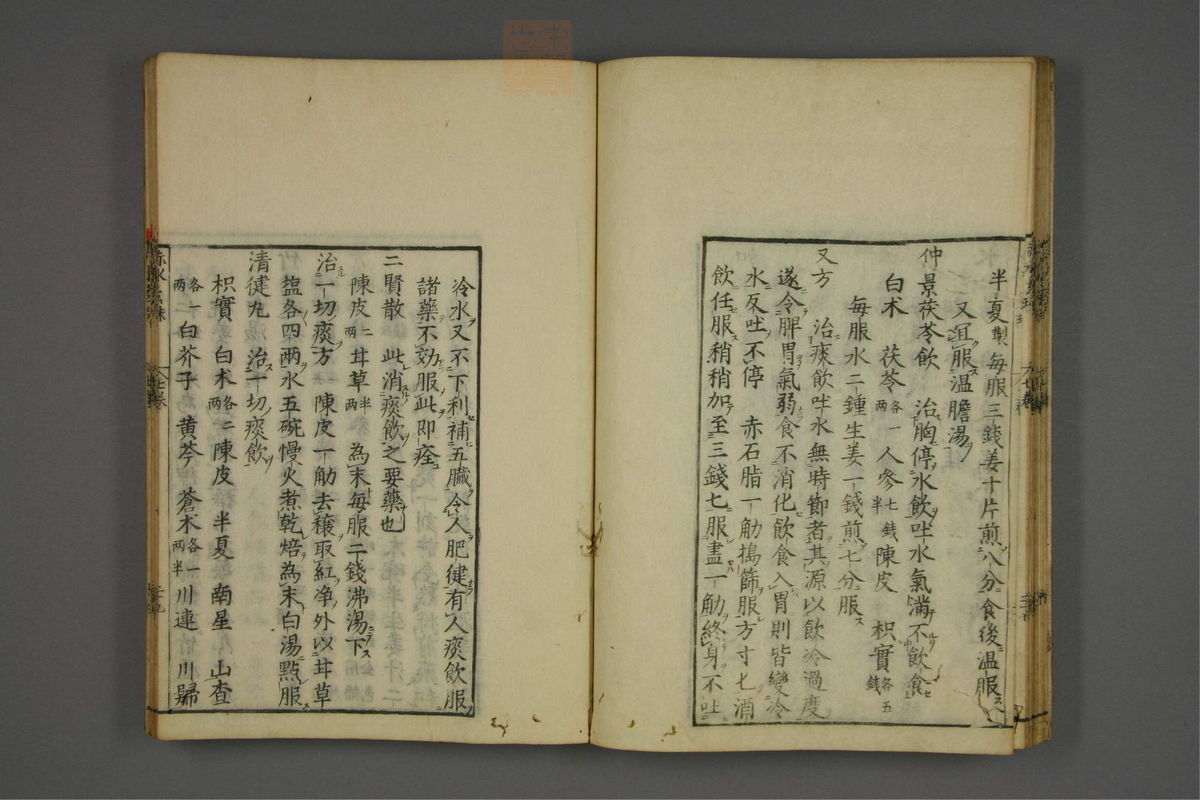 半夏製每服三錢姜十片煎八分食後溫服
又宜服溫膽湯
仲景茯苓飲　治胸停水飲吐水氣滿不飲食
白朮　茯苓各一兩　人參七錢半　陳皮　枳實各五錢
每服水二鍾生姜一錢煎七分服
又方　治痰飲吐水無時節者其源以飲冷過度
遂令脾胃氣弱食不消化飲食入胃則皆變冷
水反吐不停　赤石脂一觔搗篩服方寸匕酒
飲任服稍稍加至三錢匕服盡一觔終身不吐
冷水又不下利補五臟令人肥健有人痰飲服
諸藥不効服此即痊
二賢散　此消痰飲之要藥也
陳皮二兩　甘草半兩　為末每服二錢沸湯下
治一切痰方　陳皮一觔去穰取紅净外以甘草
塩各四兩水五碗慢火煮乾焙為末白湯點服
清健丸　治一切痰飲
枳實　白朮各二兩　陳皮　半夏　南星　山查
各一兩　白芥子　黄芩　蒼朮各一兩半　川連　川歸